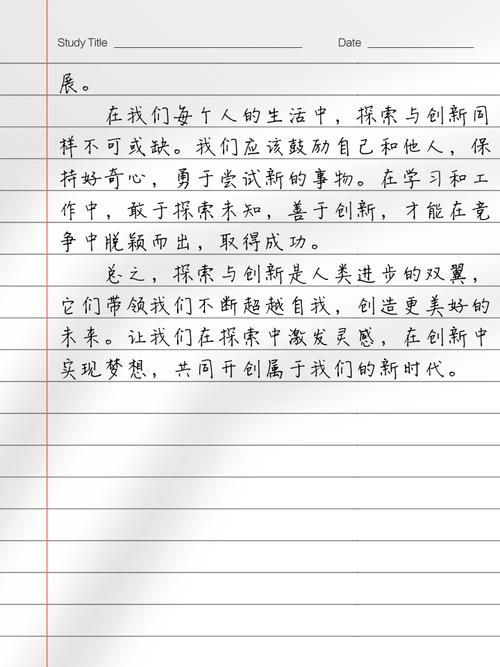 Study Title
Date
展。
在我们每个人的生活中，探索与创新同
样不可或缺。我们应该鼓励自己和他人，保
持好奇心，勇于尝试新的事物。在学习和工
作中，敢于探索未知，善于创新，才能在竞
争中脱颖而出，取得成功。
总之，探索与创新是人类进步的双翼，
它们带领我们不断超越自我，创造更美好的
未来。让我们在探索中激发灵感，在创新中
实现梦想，共同开创属于我们的新时代。